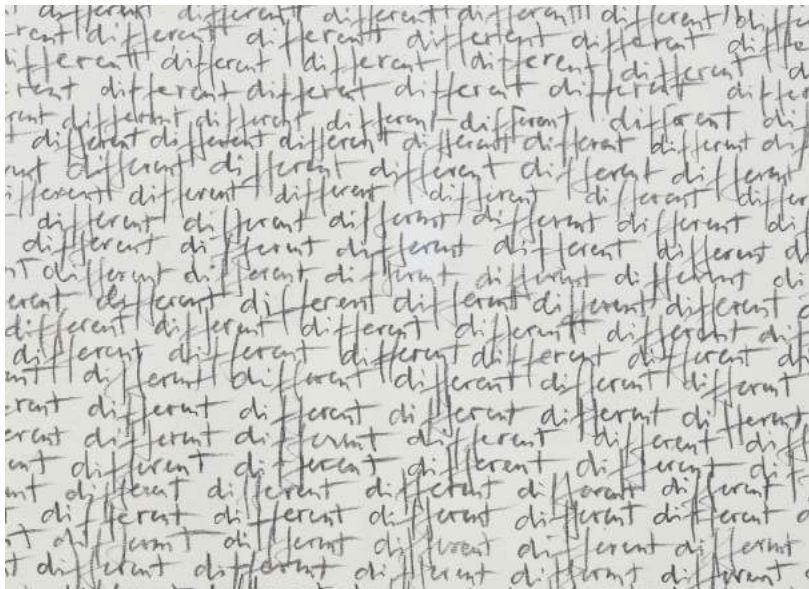 different different different different different d
ferent different different different different diff
ifferent different different different different
rent different different different different diffe
rent different different different different different di
different different different different different dif
rent different different different different different
ifferent different different different different differ
different different different different different
different different different different different d
nt different different different different different
erent different different different different different
different different different different different d
different different different different different diff
nt different different different different different
erent different different different different different
erent different different different different dif
nt different different different different dif
nt different different different different different
different different different different different d
nt different different different different different
t different different different different different d